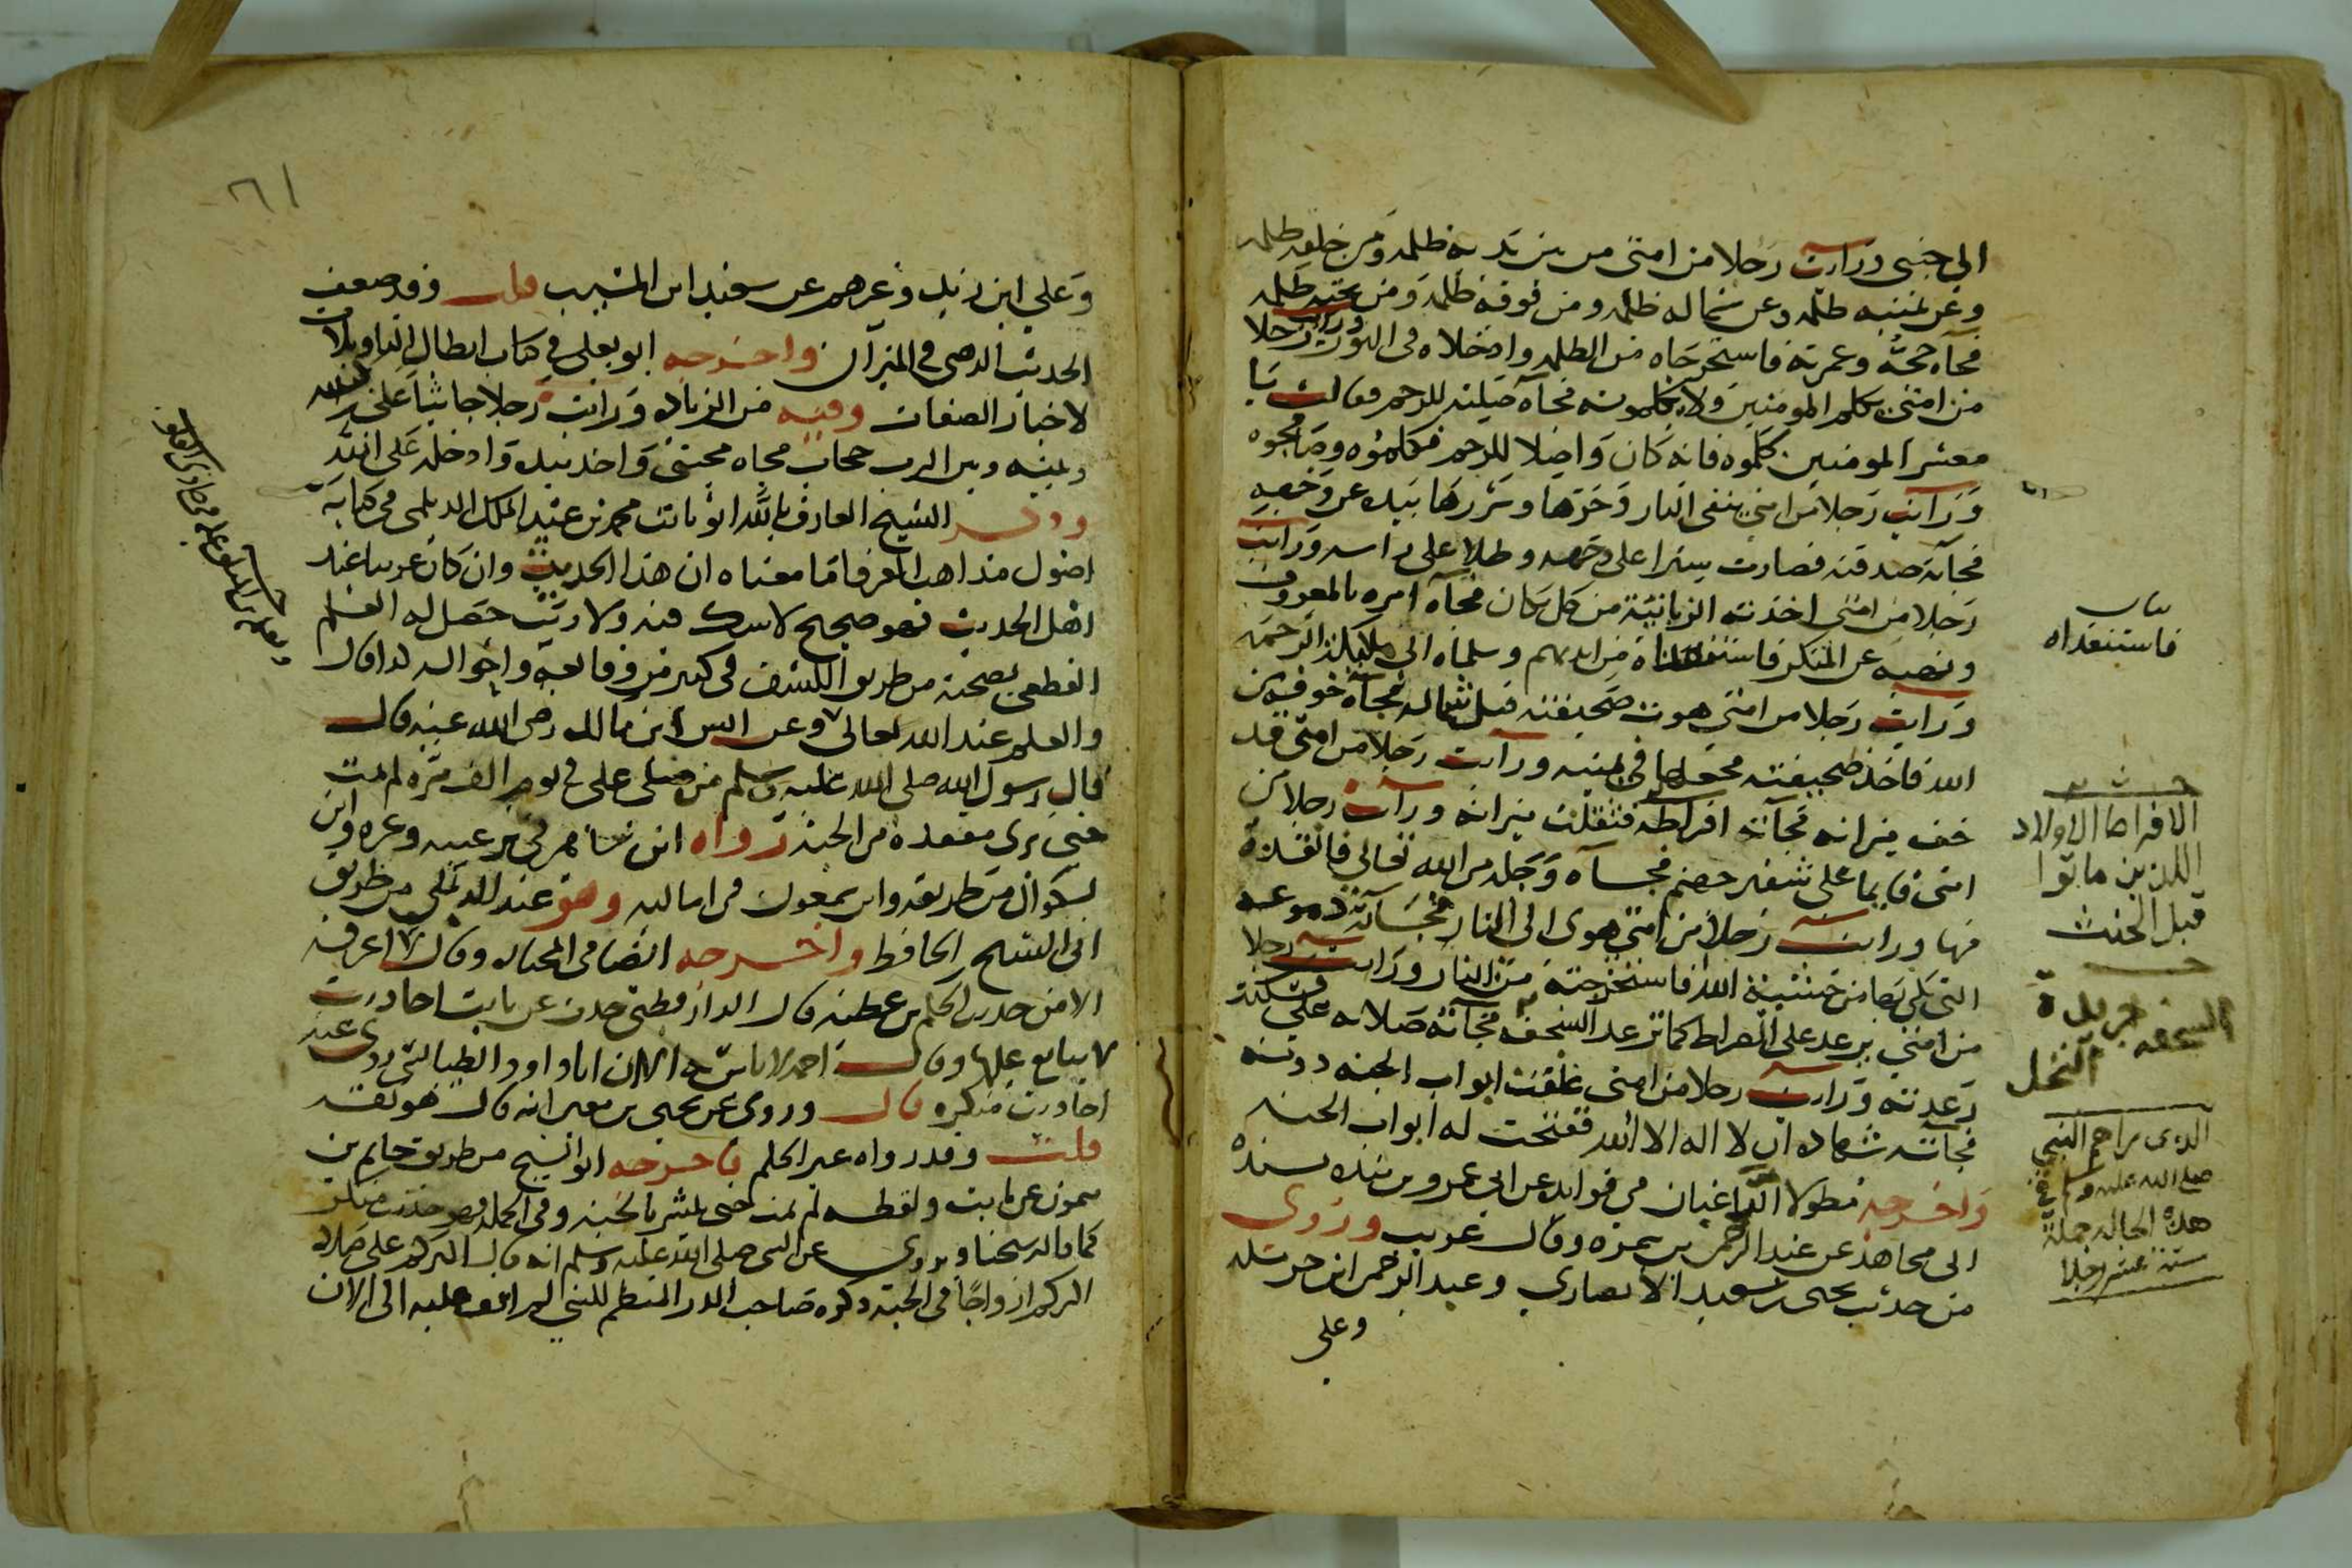 الى جنبى ورايت رجلا من امتى من بين يديه ظلمه ومن خلفه ظلمه
وعن يمينه ظلمه وعن شماله ظلمه ومن فوقه ظلمه ومن تحته ظلمه
فجاه حجه وعمرته فاستخرجاه من الظلمه وادخلاه فى النور ورايت رجلا
من امتى يكلم المومنين ولا يكلمونه فجآه صلته للرحم فقالت يا
معشر المومنين كلموه فانه كان واصلا للرحم فكلموه وصافحوه
ورايت رجلا من امتى يتقى النار وحرها وشررها بيده عن وجهه
فجآته صدقته فصارت سترا على وجهه وظلا على راسه ورايت
رجلا من امتى اخذته الزبانية من كل مكان فجآه امره بالمعروف
ونهيه عن المنكر فاستنقذاه من ايديهم وسلماه الى ملايكة الرحمة
ورايت رجلا من امتى هوت صحيفته قبل شماله فجآه خوفه من
الله فاخذ صحيفته فجعلها فى يمينه ورايت رجلا من امتى قد
خف ميزانه فجآته افراطه فثقلت ميزانه ورايت رجلا من
امتى قايما على شفير جهنم فجآه وجله من الله تعالى فانقذه
منها ورايت رجلا من امتى هوى الى النار فجآته دموعه
التى بكى بها من خشية الله فاستخرجته من النار ورايت رجلا
من امتى يرعد على الصراط كما ترعد السعفه فجآته صلاته على فسكنت
رعدته ورايت رجلا من امتى غلقت ابواب الجنه دونه
فجآته شهادة ان لا اله الا الله ففتحت له ابواب الجنه
واخرجه مطولا الباغبان فى فوايده عن ابى عمرو بن منده بسنده
الى مجاهد عن عبد الرحمن بن سمره وقال غريب وروى
من حديث يحيى بن سعيد الانصارى وعبد الرحمن ابن حرمله
وعلى
فاستنقذاه
الافراط الاولاد
الذين ماتوا
قبل الحنث
السعفه جريدة
النخل
الذى راهم النبى
صلى الله عليه وسلم فى
هذه الحاله جملة
ستة عشر رجلا
٦١
وعلى ابن زيد وغيرهم عن سعيد ابن المسيب قلت وقد ضعف
الحديث الذهبى فى الميزان واخرجه ابو يعلى فى كتاب ابطال التاويلات
لاخبار الصفات وفيه من الزياده ورايت رجلا جاثيا على ركبتيه
وبينه وبين الرب حجاب فجاه محبتى واخذ بيده وادخله على الله
وذكر الشيخ العارف بالله ابو ثابت محمد بن عبد الملك الديلمى فى كتابه
اصول مذاهب العرفا ما معناه ان هذا الحديث وان كان غريبا عند
اهل الحديث فهو صحيح لا شك فيه ولا ريب حصل له العلم
القطعى بصحته من طريق الكشف فى كثير من وقائعه واحواله كذا قال
والعلم عند الله تعالى وعن انس ابن مالك رضى الله عنه قال
قال رسول الله صلى الله عليه وسلم من صلى على فى يوم الف مره لم يمت
حتى يرى مقعده من الجنه رواه ابن شاهين فى ترغيبه وغيره وابن
بشكوال من طريقه وابن سمعون فى اماليه وهو عند الديلمى من طريق
ابى الشيخ الحافظ واخرجه الضيا فى المختاره وقال لا اعرفه
الا من حديث الحكم بن عطيه قال الدارقطنى حدث عن ثابت احاديث
لا يتابع عليها وقال احمد لا باس به الا ان ابا داود الطيالسى روى عنه
احاديث منكره قال وروى عن يحيى بن معين انه قال هو ثقه
قلت وقد رواه غير الحكم فاخرجه ابو الشيخ من طريق حاتم بن
ميمون عن ثابت ولفظه لم يمت حتى يبشر بالجنه وفى الجمله فهو حديث منكر
كما قاله شيخنا ويروى عن النبى صلى الله عليه وسلم انه قال اكثركم على صلاة
اكثركم ازواجا فى الجنة ذكره صاحب الدر المنظم لكنى لم اقف عليه الى الان